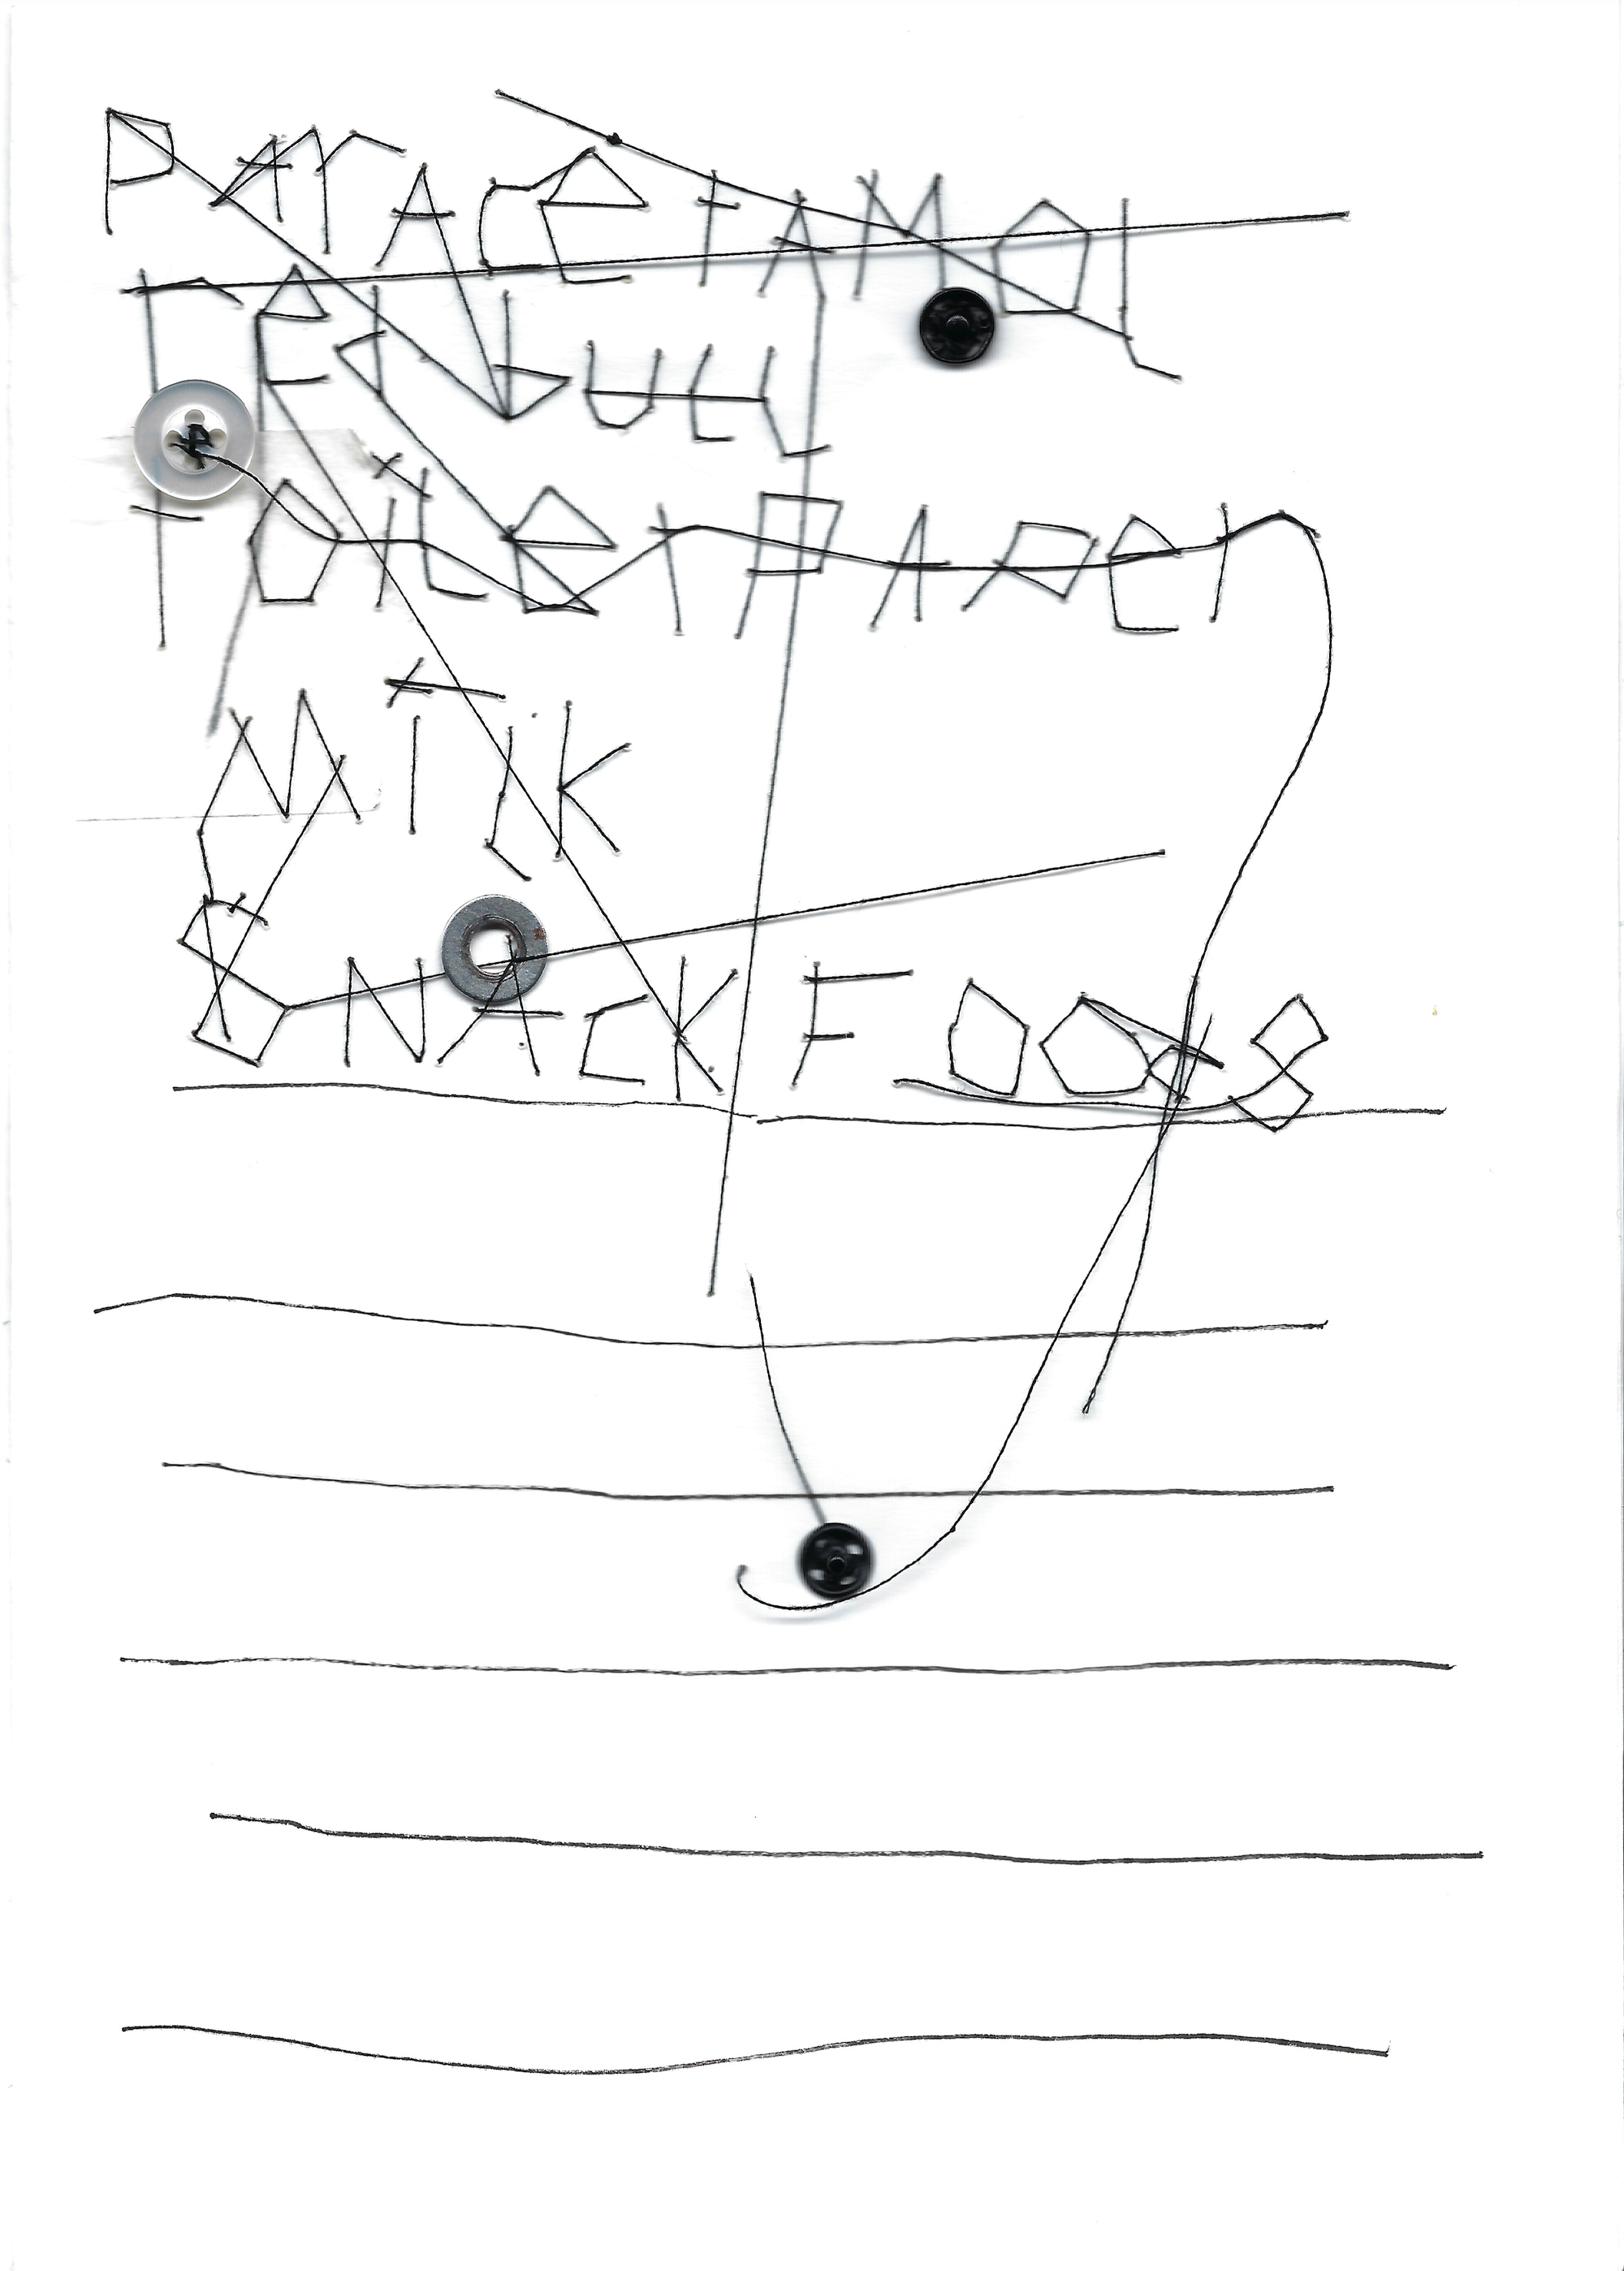 PArACeTAMOl
redbull
TOileT PAPer
MilK
SNACK FOODS